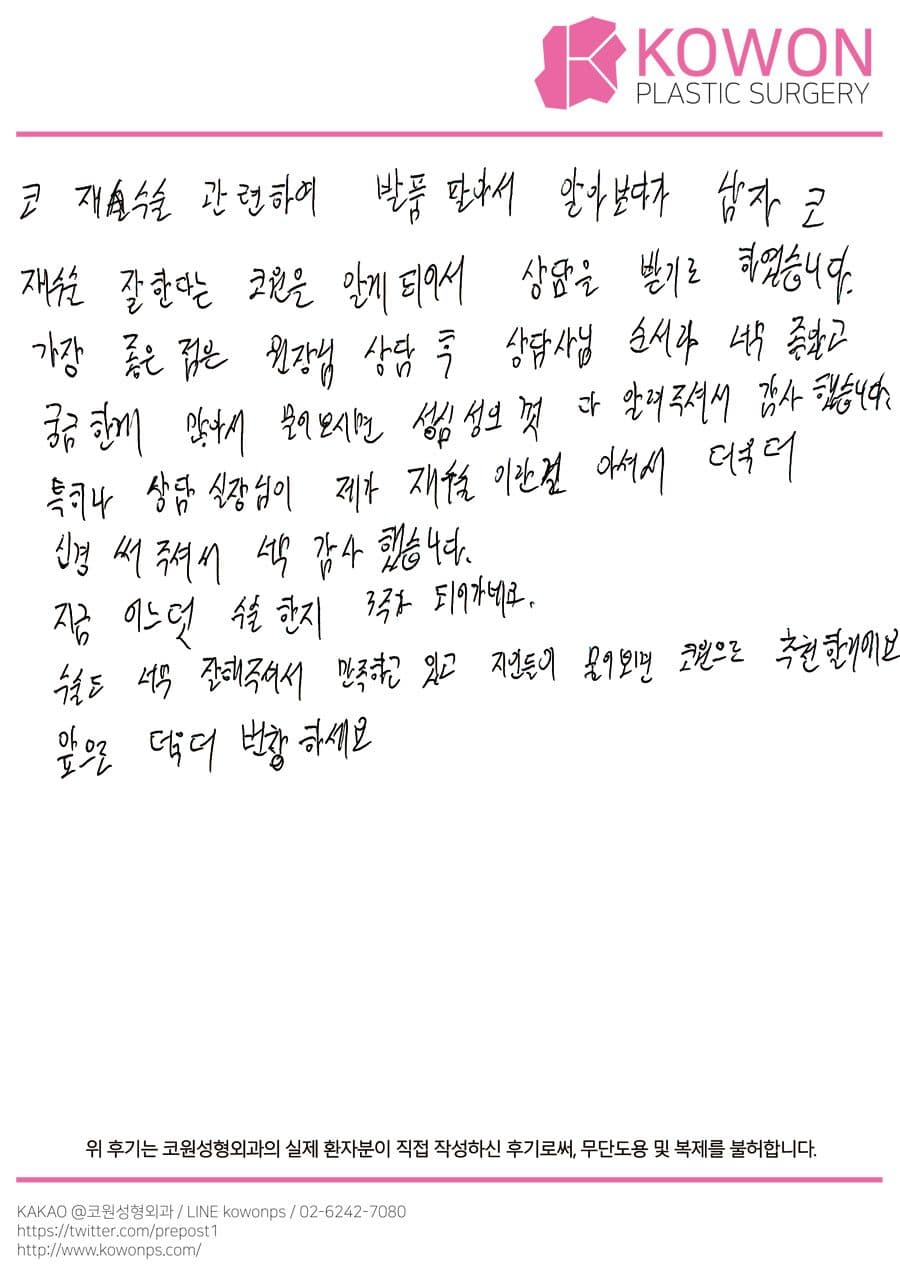 KOWON
PLASTIC SURGERY
코 재수술 관련하여 발품 팔아서 알아보다가 남자 코
재수술 잘한다는 코원을 알게 되어서 상담을 받기로 하였습니다.
가장 좋은 점은 원장님 상담 후 상담사님 순서라 너무 좋았고
궁금한게 많아서 물어보시면 성심성의 껏 다 알려주셔서 감사했습니다.
특히나 상담 실장님이 제가 재수술 이란걸 아셔서 더욱더
신경 써 주셔서 너무 감사 했습니다.
지금 어느덧 수술 한지 3주차 되어가네요.
수술도 너무 잘해주셔서 만족하고 있고 지인들이 물어보면 코원으로 추천할거에요
앞으로 더욱더 번창하세요
위 후기는 코원성형외과의 실제 환자분이 직접 작성하신 후기로써, 무단도용 및 복제를 불허합니다.
KAKAO @코원성형외과 / LINE kowonps / 02-6242-7080
https://twitter.com/prepost1
http://www.kowonps.com/